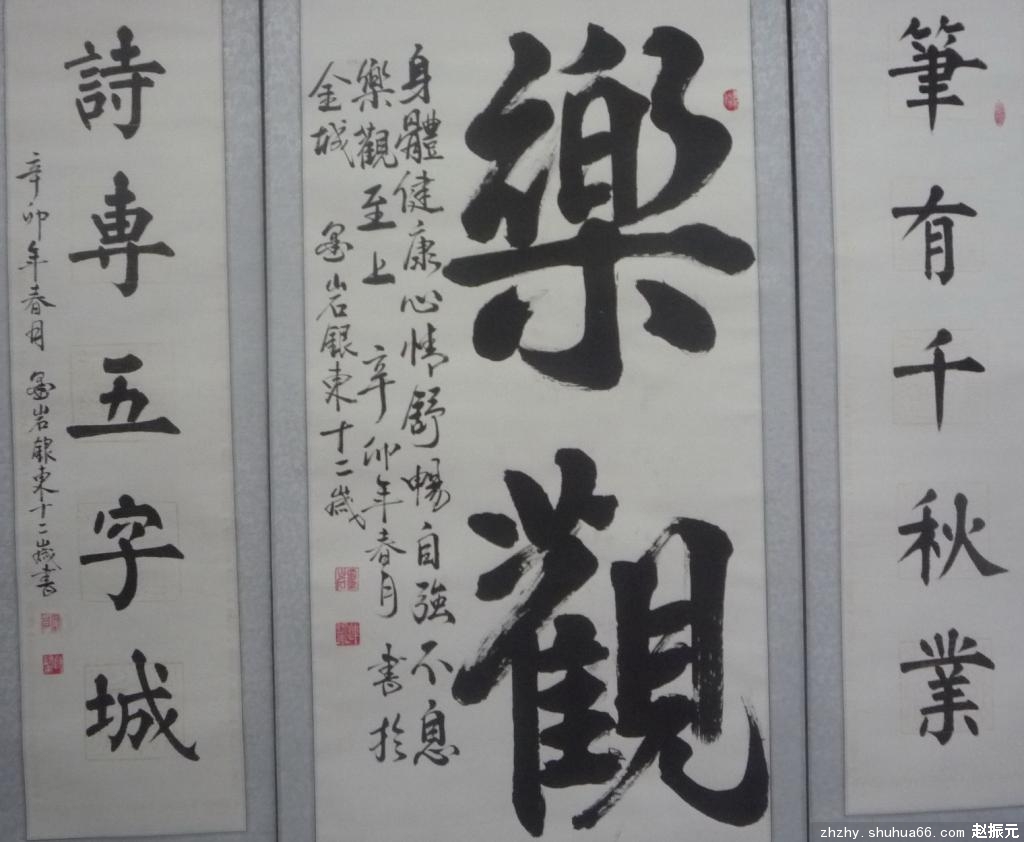 筆有千秋業
樂觀
身體健康心情舒暢自強不息
樂觀至上 辛卯年春月 書於
金城 墨岩銀東十二歲
詩專五字城
辛卯年春月 墨岩銀東十二歲書
zhzhy.shuhua66.com 赵振元